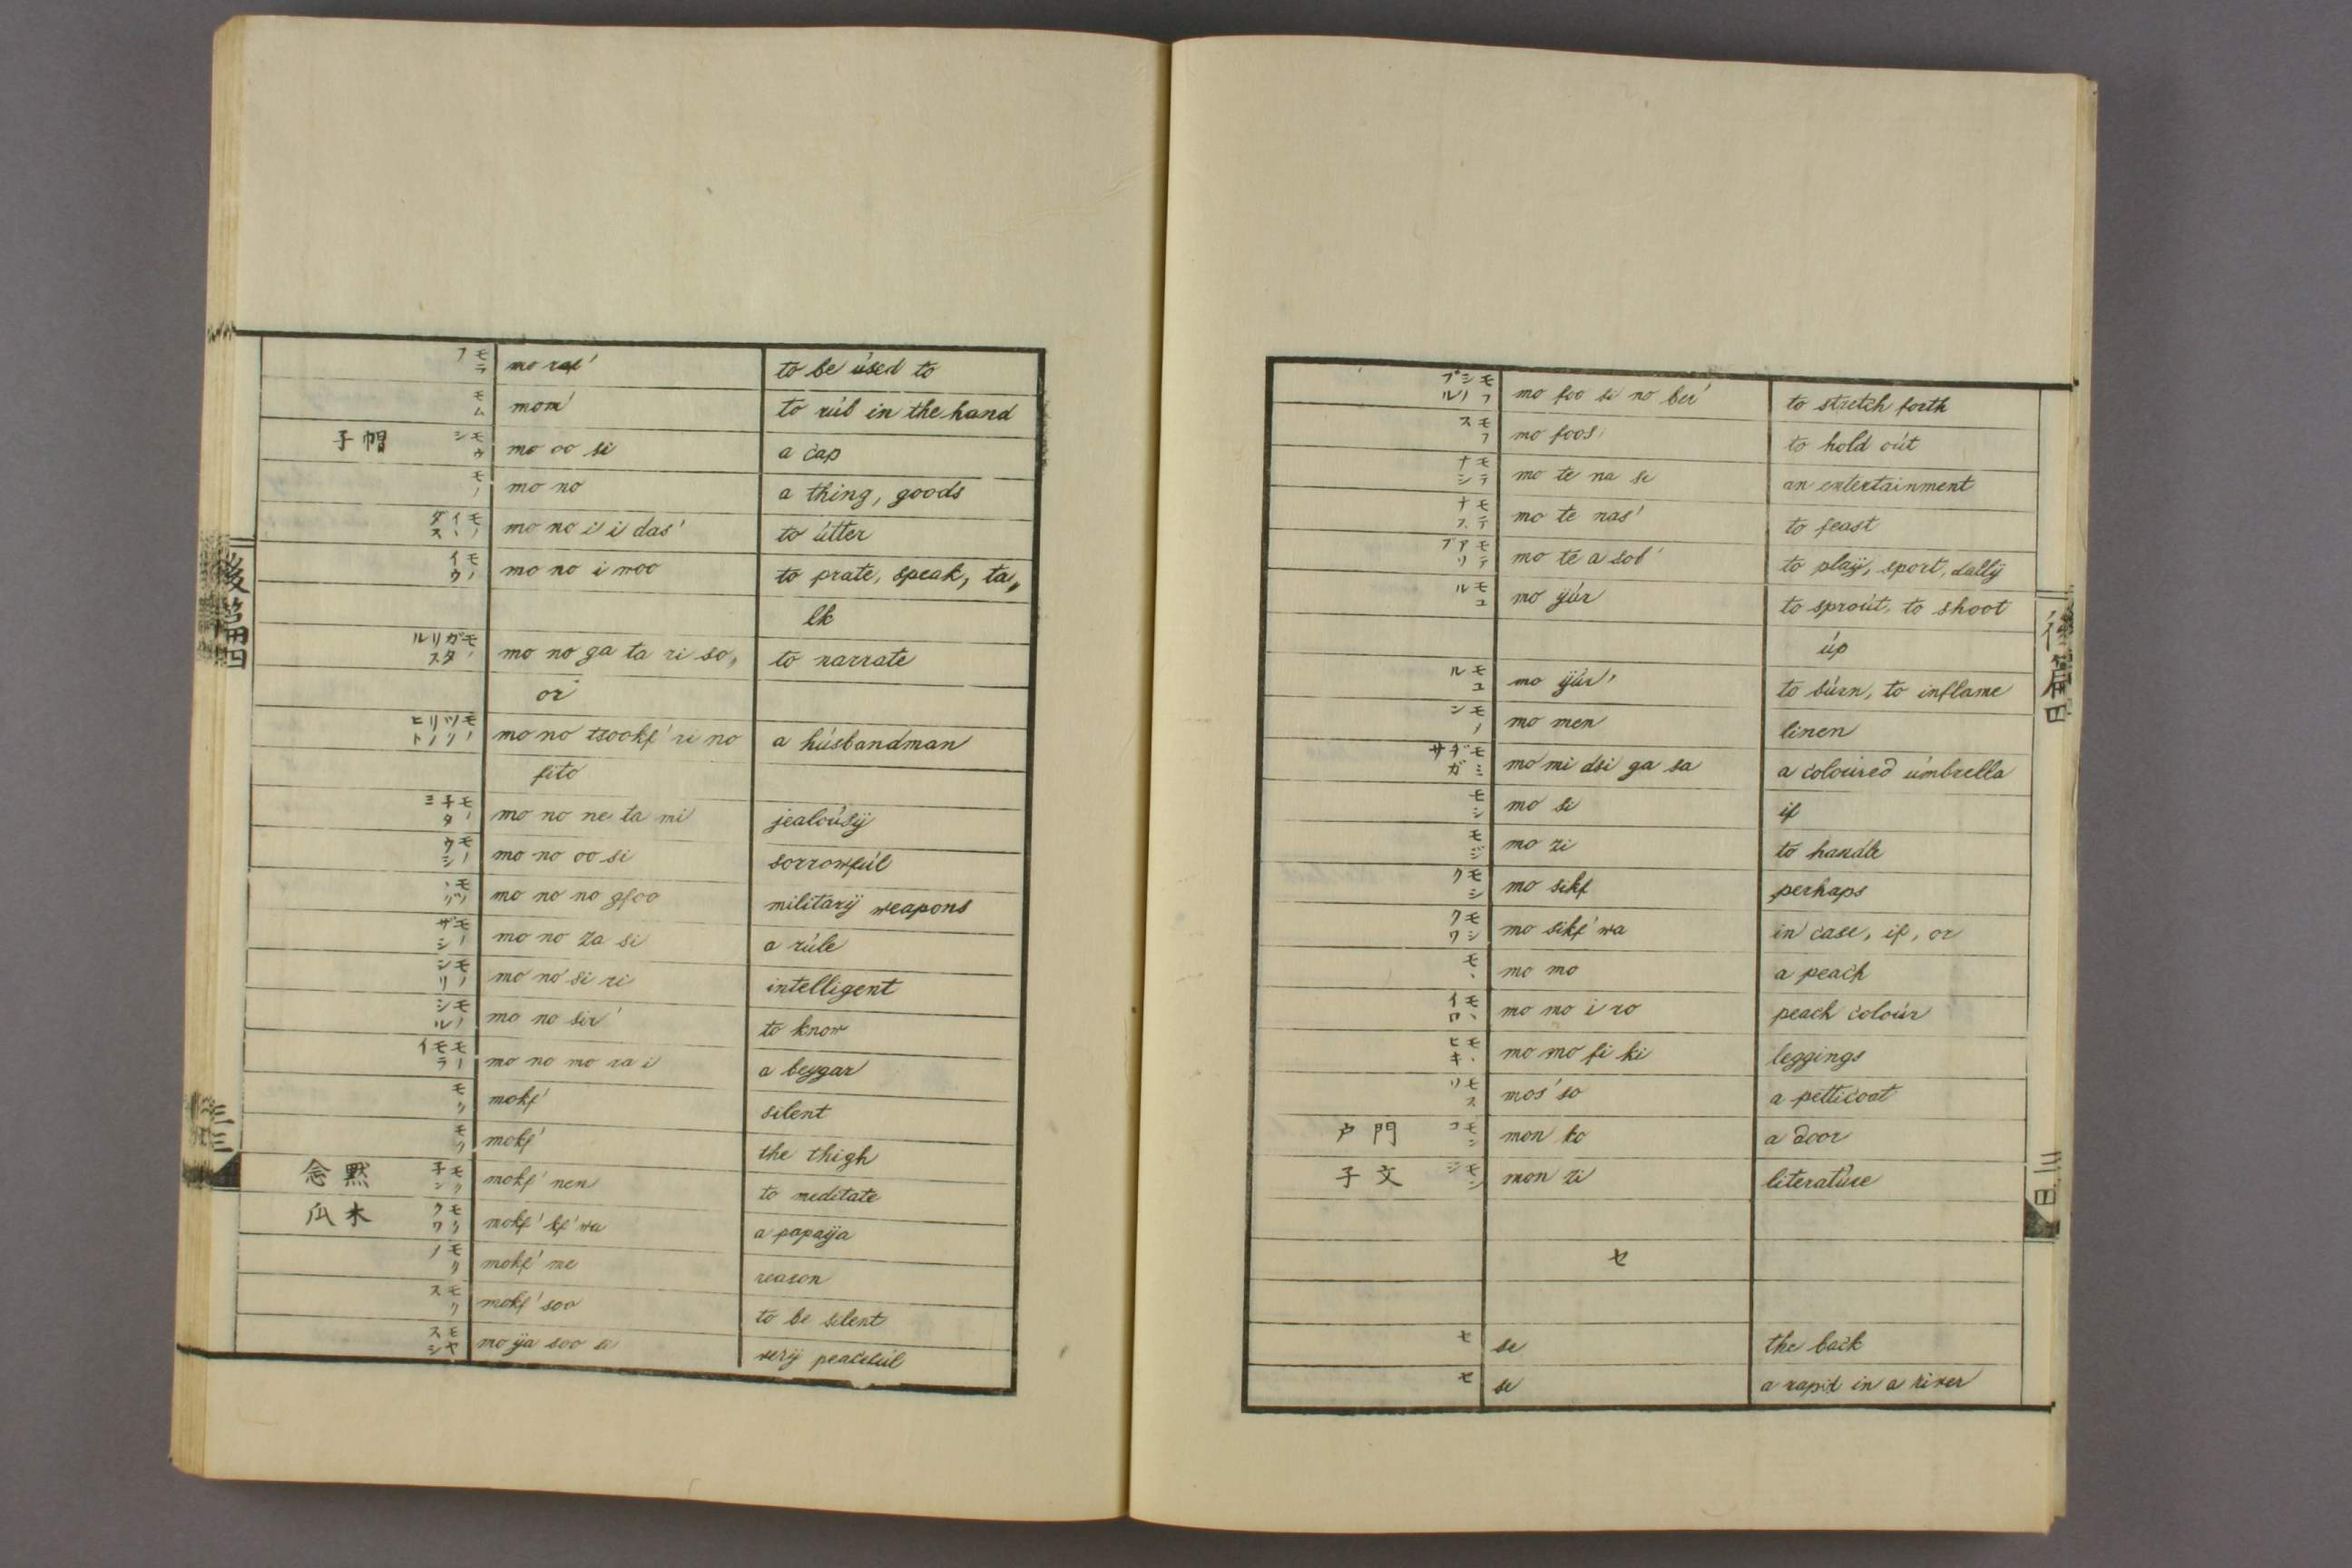 モラフ mo raf' to be úsed to
モム mom' to rúb in the hand
帽子 モウシ mo oo si a cap
モノ mo no a thing, goods
モノイヽダス mo no i i das' to útter
モノイウ mo no i woo to prate, speak, ta„
lk
モノガタリスル mo no ga ta ri so„ to narrate
or'
モノツクリノヒト mo no tsookf' ri no a húsbandman
fito
モノ子タミ mo no ne ta mi jealoúsÿ
モノウシ mo no oo si sorrowfúl
mo no no gfoo militarÿ weapons
モノザシ mo no za si a rúle
モノシリ mo no si ri intelligent
モノシル mo no sir' to know
モノモライ mo no mo ra i a beggar
モク mokf' silent
モク mokf' the thigh
黙念 モク子ン mokf' nen to meditate
木瓜 モククワ mokf' kf' wa a papaÿa
mokf' me reason
モクス mokf' soo to be silent
モヤスシ mo ÿa soo si verÿ peacefúl
後篇
三三
モフシノブル mo foo si no ber' to stretch forth
モフス mo foos' to hold oút
モテナシ mo te na si an entertainment
モテナス mo te nas' to feast
mo te a sob' to plaÿ, sport, dallÿ
モユル mo ÿúr to sproút, to shoot
úp
モユル mo ÿúr' to búrn, to inflame
mo men linen
モミヂガサ mo mi dsi ga sa a coloúred úmbrella
モシ mo si if
モジ mo zi to handle
モシク mo sikf perhaps
モシクワ mo sikf' wa in case, if, or
モヽ mo mo a peach
モヽイロ mo mo i ro peach coloúr
モヽヒキ mo mo fi ki leggings
モスソ mos' so a petticoat
門戸 モンコ mon ko a door
文子 モンジ mon zi literatúre
セ
セ se the back
セ se a rapid in a river